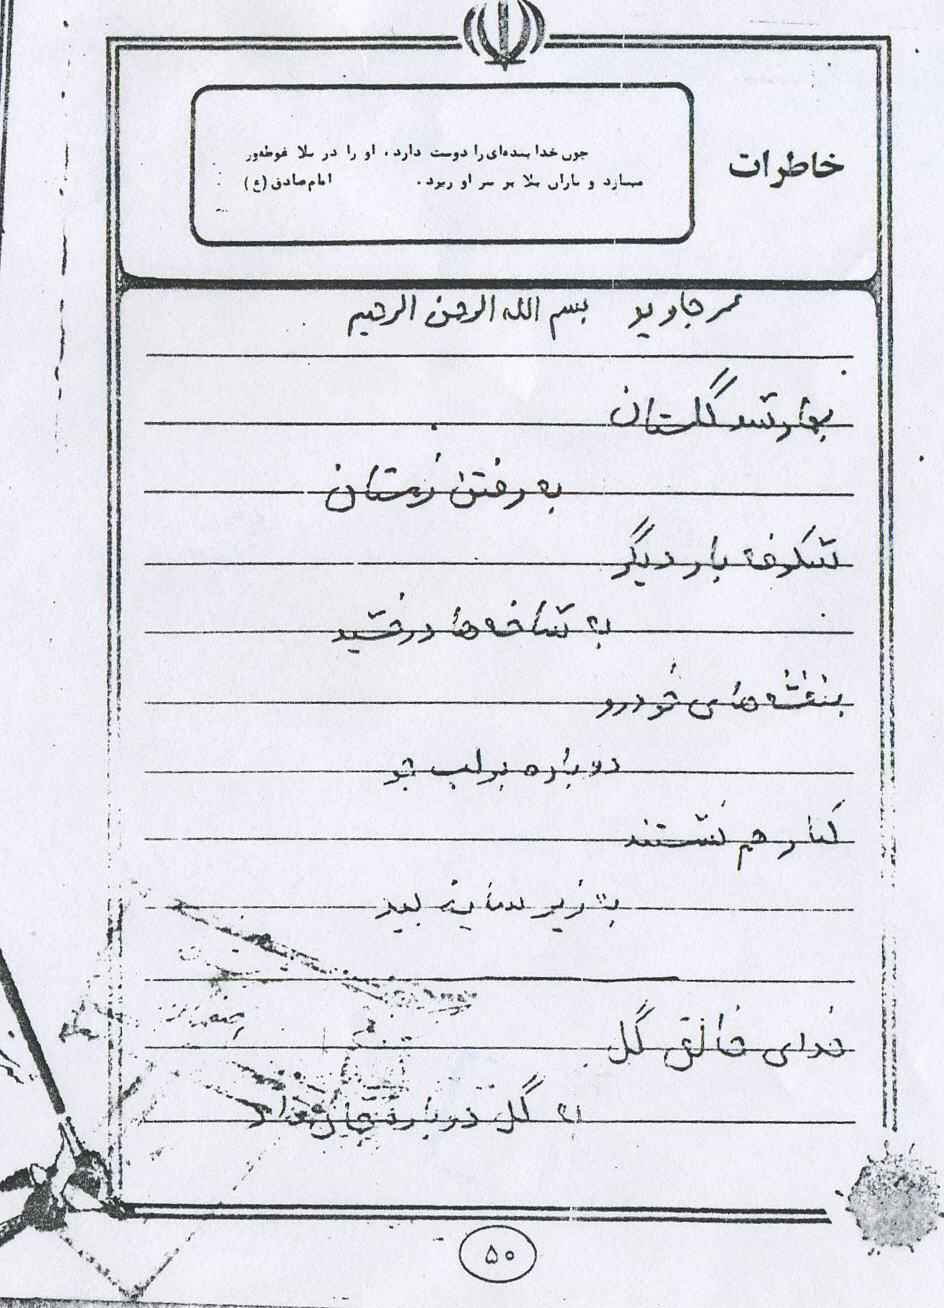 خاطرات
چون خدا بنده‌ای را دوست دارد، او را در بلا غوطه‌ور
میسازد و باران بلا بر سر او ریزد. امام صادق (ع)
عمر جاوید بسم الله الرحمن الرحیم
بهار شد گلستان
به رفتن زمستان
شکوفه بار دیگر
به شاخه‌ها درخشید
بنفشه‌های خودرو
دوباره بر لب جو
کنار هم نشستند
به زیر سایه بید
خدای خالق گل
به گل دوباره جان داد
۵۰